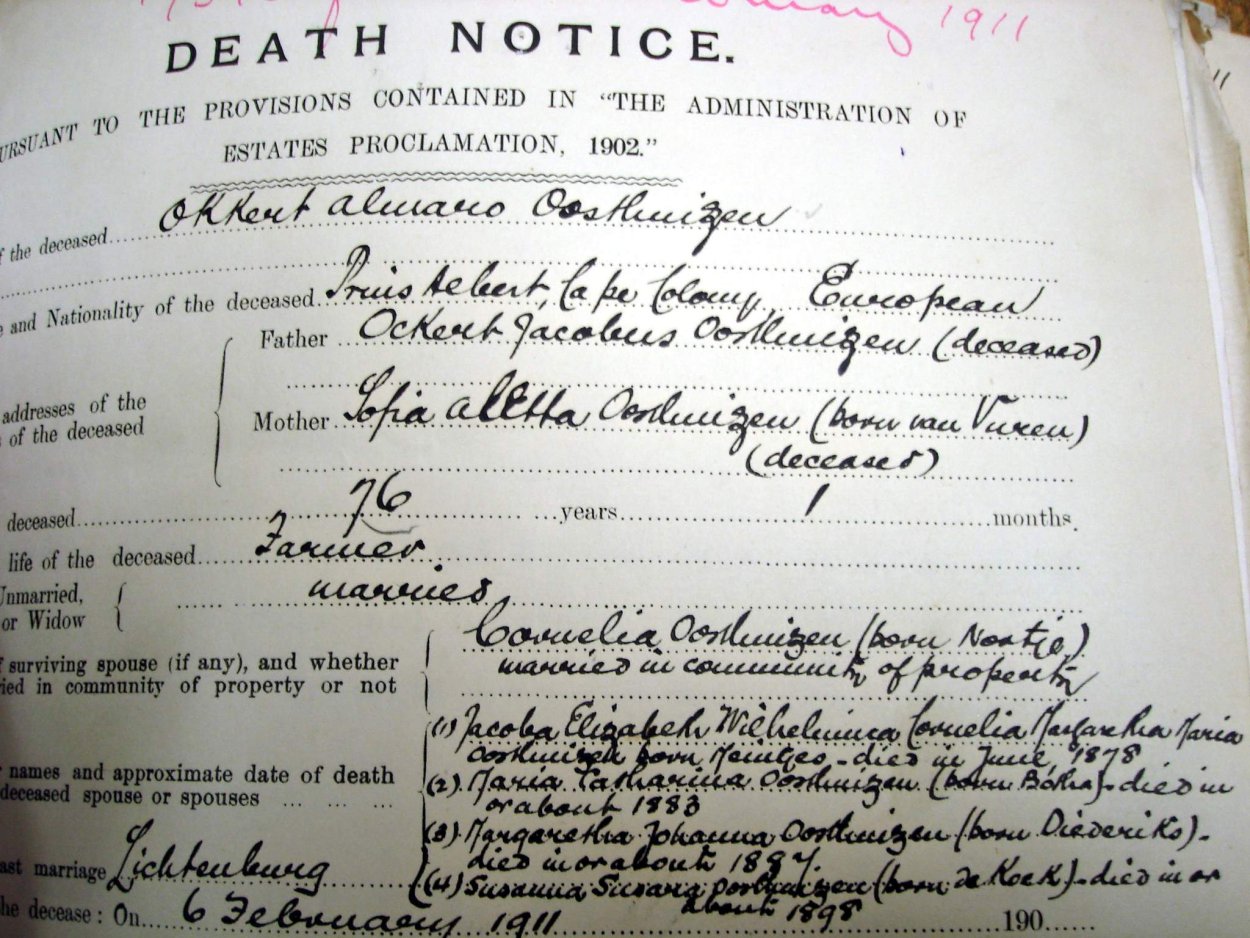 1911
DEATH NOTICE.
PURSUANT TO THE PROVISIONS CONTAINED IN "THE ADMINISTRATION OF
ESTATES PROCLAMATION, 1902."
of the deceased Okkert Almaro Oosthuizen
and Nationality of the deceased Prins Albert, Cape Colony European
Father Ockert Jacobus Oosthuizen (deceased)
addresses of the
of the deceased
Mother Sofia Aletta Oosthuizen (born van Vuren)
(deceased)
deceased 76 years 1 months.
life of the deceased Farmer
Unmarried,
or Widow married
Cornelia Oosthuizen (born Nortje)
surviving spouse (if any), and whether married in community of property
ied in community of property or not
(1) Jacoba Elizabeth Wilhelmina Cornelia Margaretha Maria
Oosthuizen born Meintjes - died in June, 1878
names and approximate date of death (2) Maria Catharina Oosthuizen (born Botha) - died in
deceased spouse or spouses ... ... ... or about 1883
(3) Margaretha Johanna Oosthuizen (born Diederiks) -
died in or about 1887.
ast marriage Lichtenburg (4) Susanna Susara Oosthuizen (born de Kock) - died in or
about 1898
he decease: On 6 February 1911 190